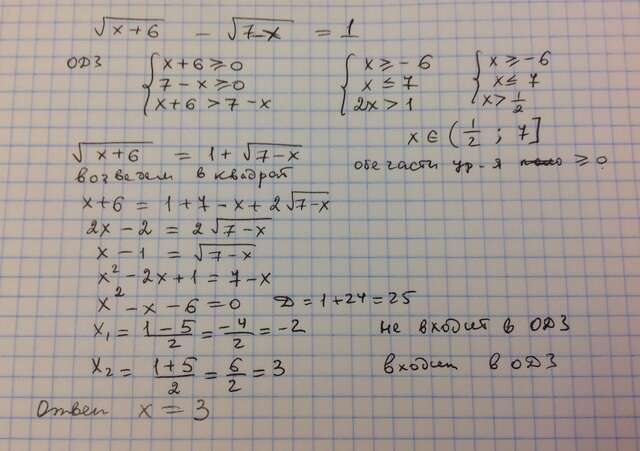 √(x+6) - √(7-x) = 1
ОДЗ { x+6 ≥ 0 { x ≥ -6 { x ≥ -6
7-x ≥ 0 x ≤ 7 x ≤ 7
x+6 > 7-x 2x > 1 x > 1/2
x ∈ (1/2 ; 7]
√(x+6) = 1 + √(7-x) обе части ур-я ≥ 0
возведем в квадрат
x+6 = 1+7-x+2√(7-x)
2x-2 = 2√(7-x)
x-1 = √(7-x)
x²-2x+1 = 7-x
x²-x-6=0 D = 1+24 = 25
x₁ = (1-5)/2 = -4/2 = -2 не входит в ОДЗ
x₂ = (1+5)/2 = 6/2 = 3 входит в ОДЗ
Ответ x = 3